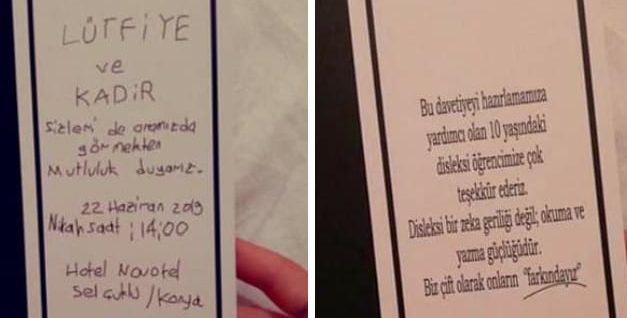 LÜTFİYE
ve
KADİR
Sizleri de aramızda
görmekten
Mutluluk duyarız.
22 Haziran 2019
Nikah saat : 14:00
Hotel Novotel
Selçuklu / Konya
Bu davetiyeyi hazırlamamıza
yardımcı olan 10 yaşındaki
disleksi öğrencimize çok
teşekkür ederiz.
Disleksi bir zeka geriliği değil; okuma ve
yazma güçlüğüdür.
Biz çift olarak onların "farkındayız"